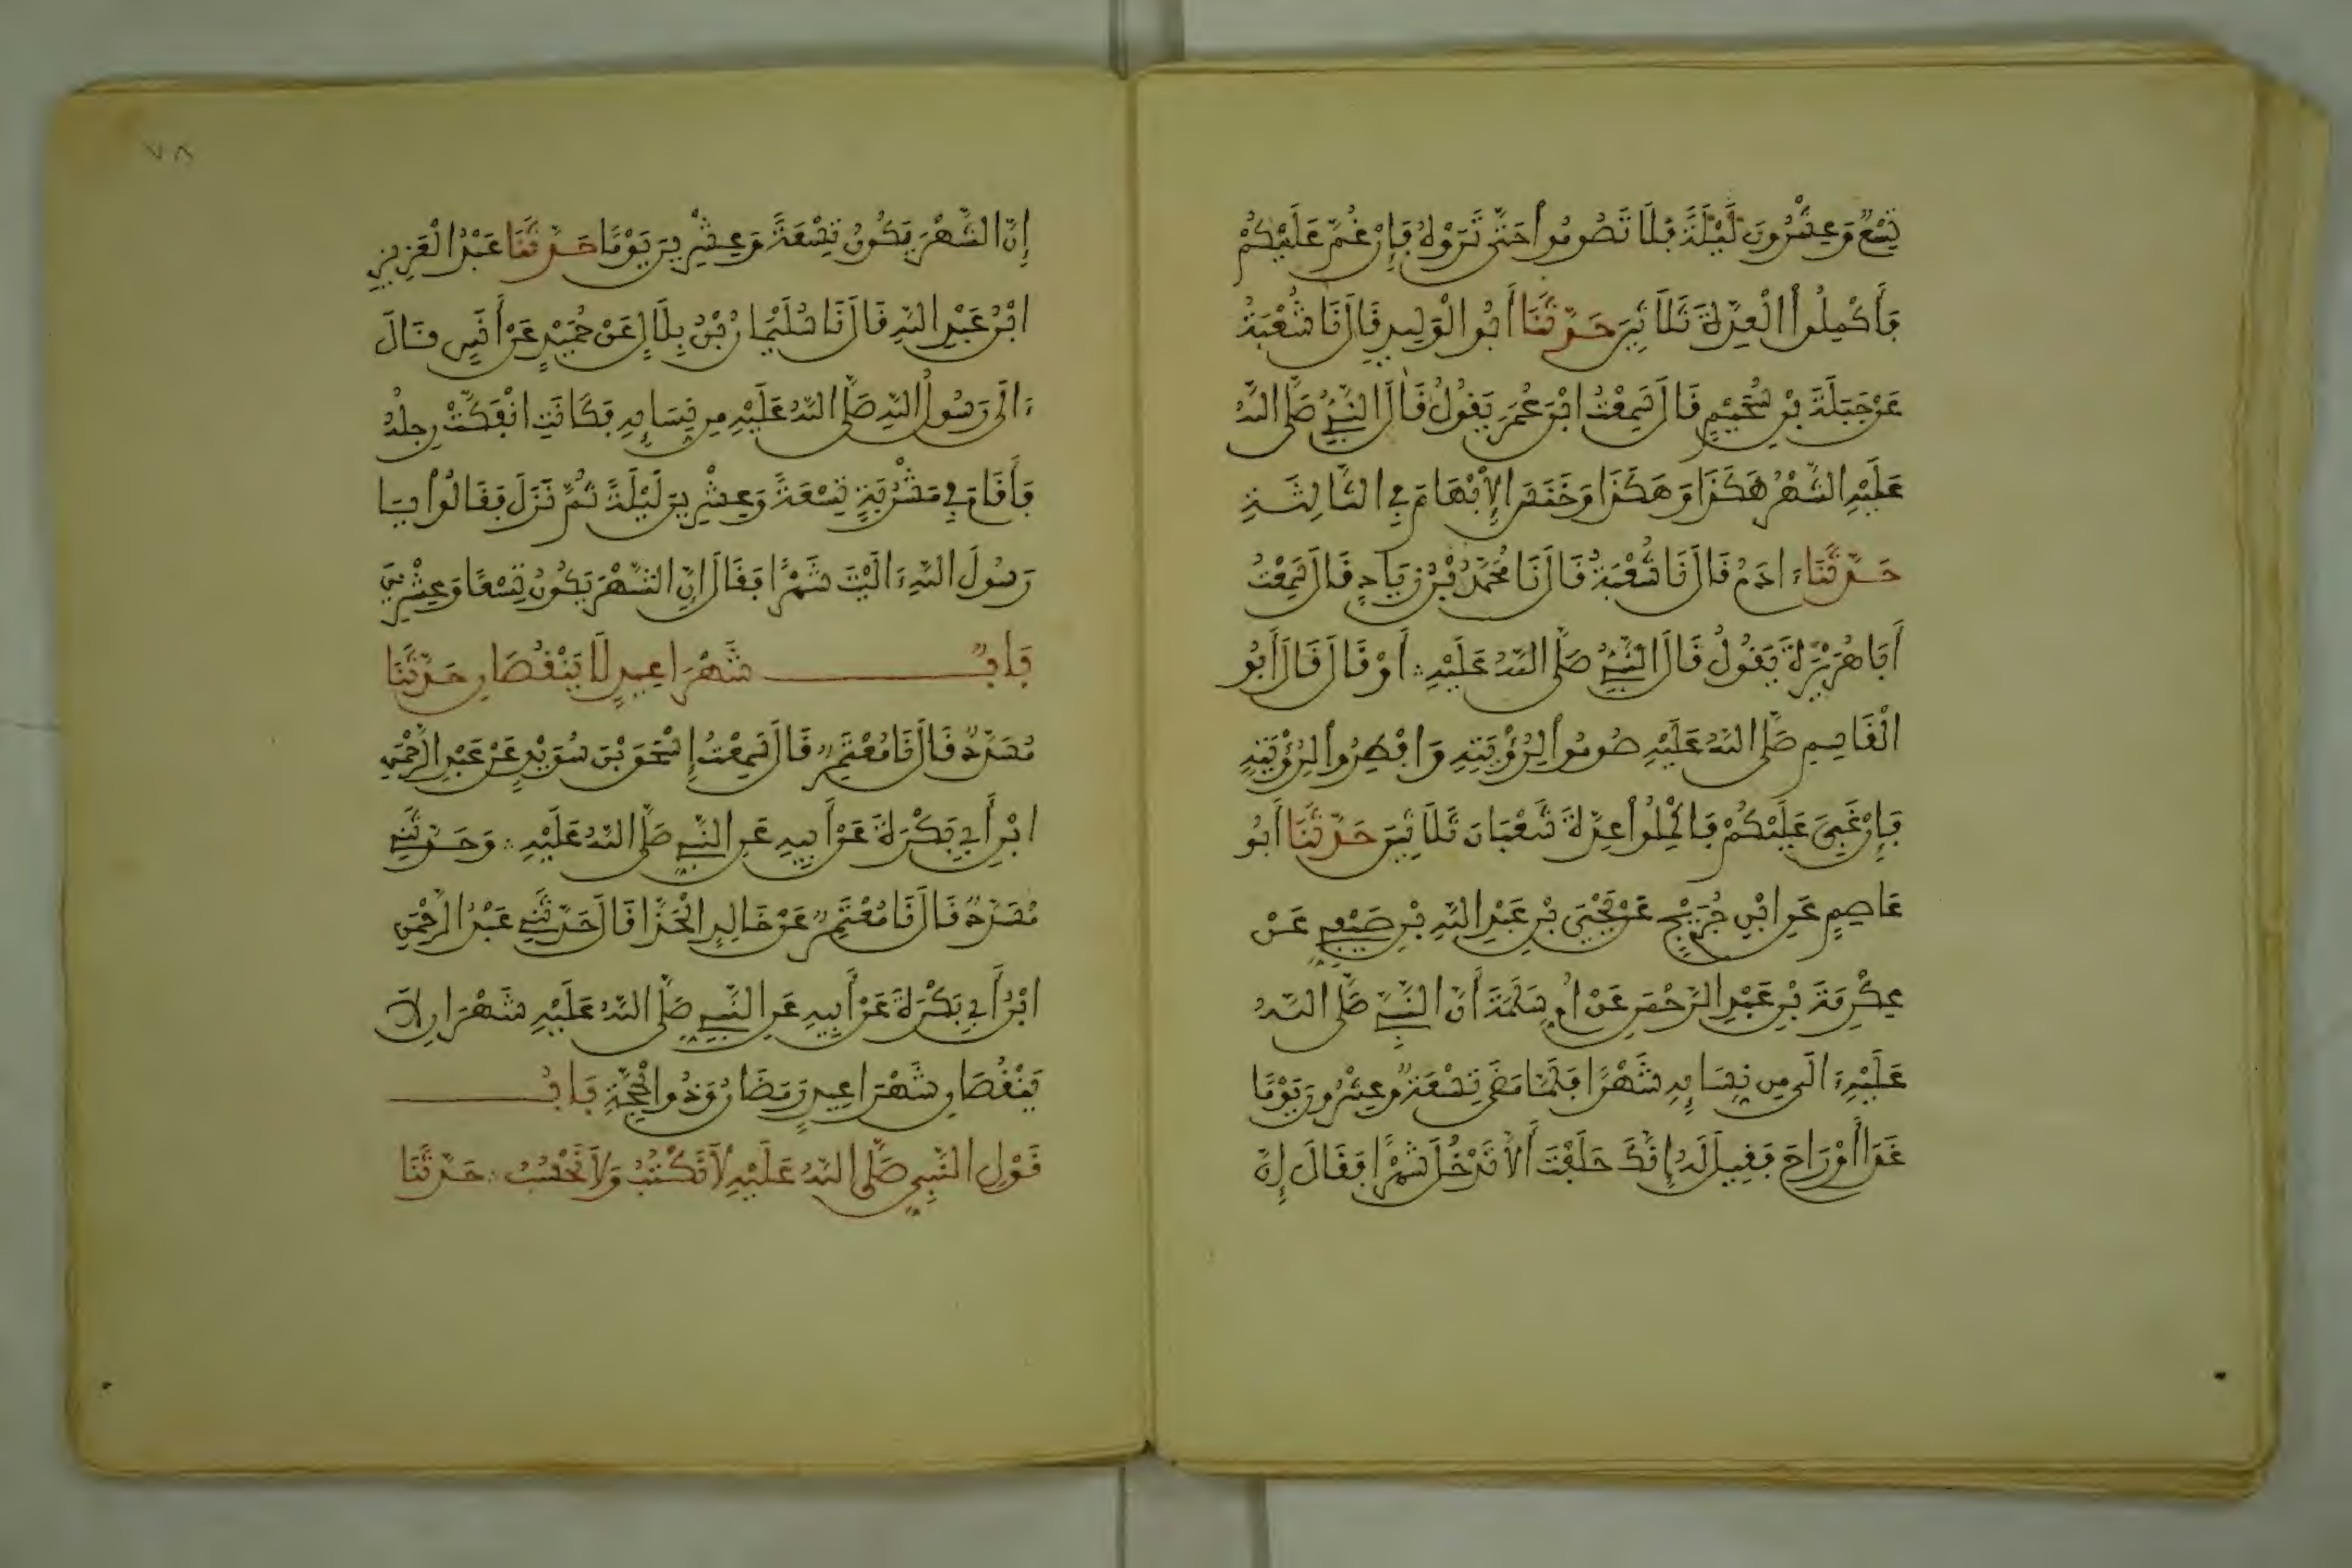 تِسْعٌ وَعِشْرُونَ لَيْلَةً فَلَا تَصُومُوا حَتَّى تَرَوْهُ فَإِنْ غُمَّ عَلَيْكُمْ
فَأَكْمِلُوا الْعِدَّةَ ثَلَاثِينَ حَدَّثَنَا أَبُو الْوَلِيدِ قَالَ نَا شُعْبَةُ
عَنْ جَبَلَةَ بْنِ سُحَيْمٍ قَالَ سَمِعْتُ ابْنَ عُمَرَ يَقُولُ قَالَ النَّبِيُّ صَلَّى اللَّهُ
عَلَيْهِ الشَّهْرُ هَكَذَا وَهَكَذَا وَخَنَسَ الْإِبْهَامَ فِي الثَّالِثَةِ
حَدَّثَنَا ءَادَمُ قَالَ نَا شُعْبَةُ قَالَ نَا مُحَمَّدُ بْنُ زِيَادٍ قَالَ سَمِعْتُ
أَبَا هُرَيْرَةَ يَقُولُ قَالَ النَّبِيُّ صَلَّى اللَّهُ عَلَيْهِ أَوْ قَالَ قَالَ أَبُو
الْقَاسِمِ صَلَّى اللَّهُ عَلَيْهِ صُومُوا لِرُؤْيَتِهِ وَأَفْطِرُوا لِرُؤْيَتِهِ
فَإِنْ غَبِيَ عَلَيْكُمْ فَأَكْمِلُوا عِدَّةَ شَعْبَانَ ثَلَاثِينَ حَدَّثَنَا أَبُو
عَاصِمٍ عَنِ ابْنِ جُرَيْجٍ عَنْ يَحْيَى بْنِ عَبْدِ اللَّهِ بْنِ صَيْفِيٍّ عَنْ
عِكْرِمَةَ بْنِ عَبْدِ الرَّحْمَنِ عَنْ أُمِّ سَلَمَةَ أَنَّ النَّبِيَّ صَلَّى اللَّهُ
عَلَيْهِ ءَالَى مِن نِسَائِهِ شَهْرًا فَلَمَّا مَضَى تِسْعَةٌ وَعِشْرُونَ يَوْمًا
غَدَا أَوْ رَاحَ فَقِيلَ لَهُ إِنَّكَ حَلَفْتَ أَلَّا تَدْخُلَ شَهْرًا فَقَالَ إِنَّ
٧٨
إِنَّ الشَّهْرَ يَكُونُ تِسْعَةً وَعِشْرِينَ يَوْمًا حَدَّثَنَا عَبْدُ الْعَزِيزِ
ابْنُ عَبْدِ اللَّهِ قَالَ نَا سُلَيْمَانُ بْنُ بِلَالٍ عَنْ حُمَيْدٍ عَنْ أَنَسٍ قَالَ
ءَالَى رَسُولُ اللَّهِ صَلَّى اللَّهُ عَلَيْهِ مِن نِسَائِهِ فَكَانَتِ انْفَكَّتْ رِجْلُهُ
فَأَقَامَ فِي مَشْرُبَةٍ تِسْعَةً وَعِشْرِينَ لَيْلَةً ثُمَّ نَزَلَ فَقَالُوا يَا
رَسُولَ اللَّهِ ءَالَيْتَ شَهْرًا فَقَالَ إِنَّ الشَّهْرَ يَكُونُ تِسْعًا وَعِشْرِينَ
بَابٌ شَهْرَا عِيدٍ لَا يَنْقُصَانِ حَدَّثَنَا
مُسَدَّدٌ قَالَ نَا مُعْتَمِرٌ قَالَ سَمِعْتُ إِسْحَقَ بْنَ سُوَيْدٍ عَنْ عَبْدِ الرَّحْمَنِ
ابْنِ أَبِي بَكْرَةَ عَنْ أَبِيهِ عَنِ النَّبِيِّ صَلَّى اللَّهُ عَلَيْهِ وَحَدَّثَنِي
مُسَدَّدٌ قَالَ نَا مُعْتَمِرٌ عَنْ خَالِدٍ الْحَذَّا قَالَ حَدَّثَنِي عَبْدُ الرَّحْمَنِ
ابْنُ أَبِي بَكْرَةَ عَنْ أَبِيهِ عَنِ النَّبِيِّ صَلَّى اللَّهُ عَلَيْهِ شَهْرَانِ لَا
يَنْقُصَانِ شَهْرَا عِيدٍ رَمَضَانُ وَذُو الْحِجَّةِ بَابُ
قَوْلِ النَّبِيِّ صَلَّى اللَّهُ عَلَيْهِ لَا نَكْتُبُ وَلَا نَحْسُبُ حَدَّثَنَا